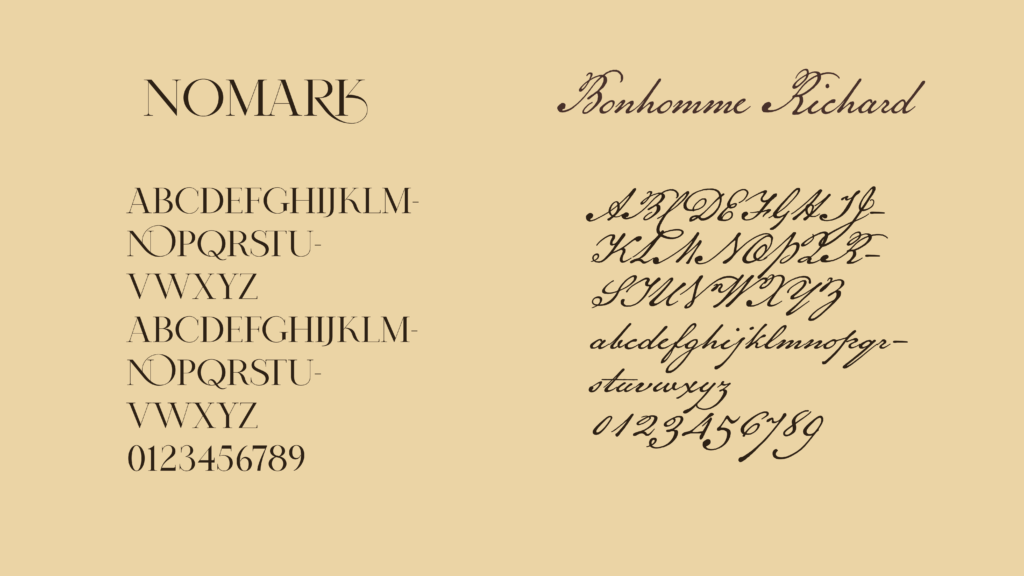 NOMARK
ABCDEFGHIJKLM-
NOPQRSTU-
VWXYZ
ABCDEFGHIJKLM-
NOPQRSTU-
VWXYZ
0123456789
Bonhomme Richard
ABCDEFGHIJ-
KLMNOPQR-
STUVWXYZ
abcdefghijklmnopqr-
stuvwxyz
0123456789